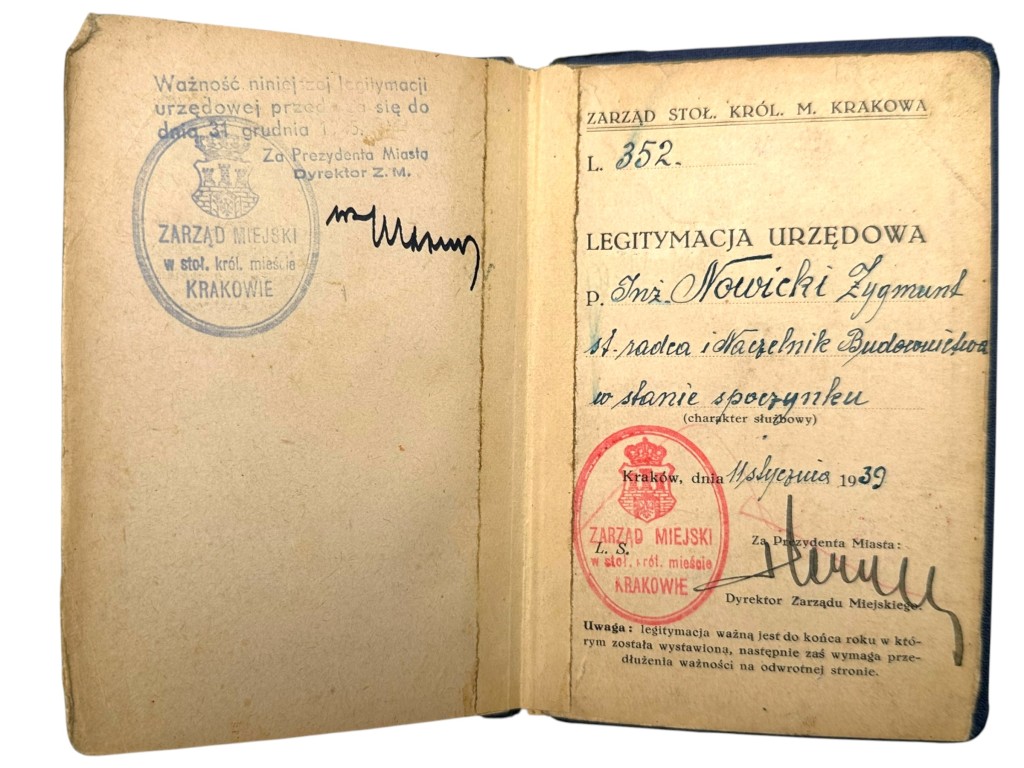 Ważność niniejszej legitymacji
urzędowej przedłuża się do
dnia 31 grudnia
Za Prezydenta Miasta
Dyrektor Z. M.
ZARZĄD MIEJSKI
w stoł. król. mieście
KRAKOWIE
ZARZĄD STOŁ. KRÓL. M. KRAKOWA
L. 352.
LEGITYMACJA URZĘDOWA
p. Inż. Nowicki Zygmunt
st. radca i Naczelnik Budownictwa
w stanie spoczynku
(charakter służbowy)
Kraków, dnia 11 stycznia 1939
ZARZĄD MIEJSKI
w stoł. król. mieście
KRAKOWIE
L. S.
Za Prezydenta Miasta:
Dyrektor Zarządu Miejskiego.
Uwaga: legitymacja ważną jest do końca roku w któ-
rym została wystawioną, następnie zaś wymaga prze-
dłużenia ważności na odwrotnej stronie.